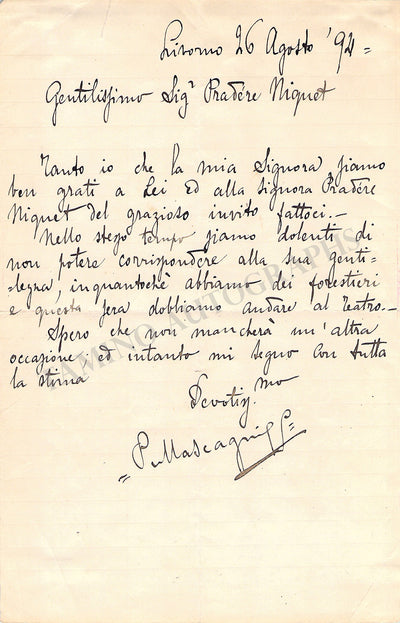 Livorno 26 Agosto '94=
Gentilissimo Sigr Pradére Niquet
Tanto io che la mia Signora, siamo
ben grati a Lei ed alla Signora Pradére
Niquet del grazioso invito fattoci.—
Nello stesso tempo siamo dolenti di
non potere corrispondere alla sua genti-
=lezza, inquantochè abbiamo dei forestieri
e questa sera dobbiamo andare al teatro.—
Spero che non mancherà un'altra
occasione; ed intanto mi segno con tutta
la stima
Devotissmo
=PMascagni=
TAMINO AUTOGRAPHS